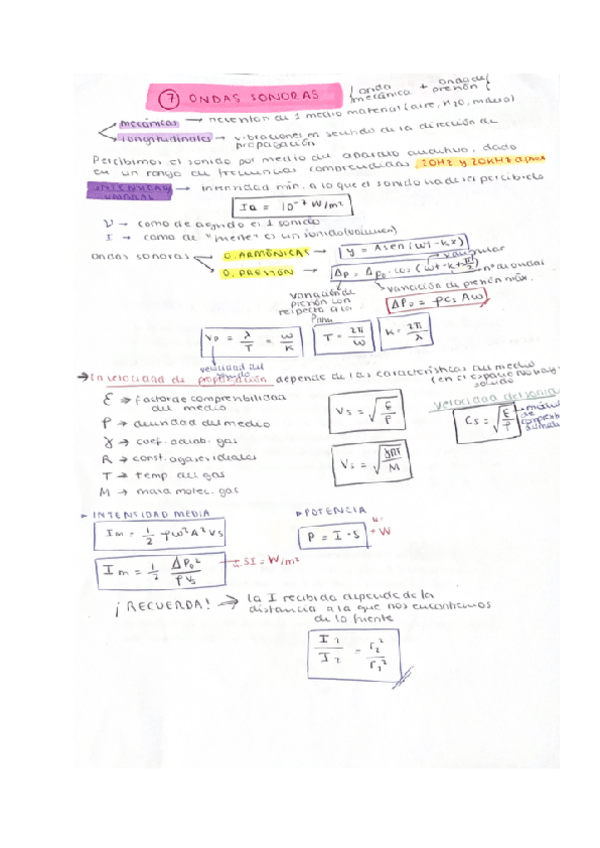 ⑦ ONDAS SONORAS { onda mecánica + onda de presión {
mecánicas → necesitan de 1 medio material (aire, H2O, madera)
longitudinales → vibraciones en sentido de la dirección de propagación
Percibimos el sonido por medio del aparato auditivo, dado
en un rango de frecuencias comprendidas 20Hz y 20KHz aprox
INTENSIDAD UMBRAL → intensidad min. a la que el sonido puede ser percibido
I = 10⁻¹² W/m²
V → como de agudo es 1 sonido
I → como de "fuerte" es un sonido (volumen)
ondas sonoras → O. ARMÓNICAS → y = A sen (wt - kx)
→ O. PRESIÓN → Δp = Δp₀ · cos (wt - kx + π/2)
v. angular
nº de ondas
variación de presión con respecto a la Patm
variación de presión máx.
ΔP₀ = ρ Cs Aω
Vp = λ/T = ω/K
T = 2π/ω
K = 2π/λ
velocidad del sonido
→ La velocidad de propagación depende de las características del medio
(en el espacio no hay sonido
ξ → factor de compresibilidad del medio
ρ → densidad del medio
γ → coef. adiab. gas
R → const. gases ideales
T → temp del gas
M → masa molec. gas
Vs = √ξ/ρ
Vs = √γRT/M
velocidad del sonido
Cs = √ξ/ρ
→ INTENSIDAD MEDIA
Im = 1/2 ρω²A²Vs
Im = 1/2 ΔP₀²/ρVs
SI = W/m²
▸ POTENCIA
P = I · S → W
¡RECUERDA! → la I recibida depende de la
distancia a la que nos encontramos
de la fuente
I₁/I₂ = r₂²/r₁²